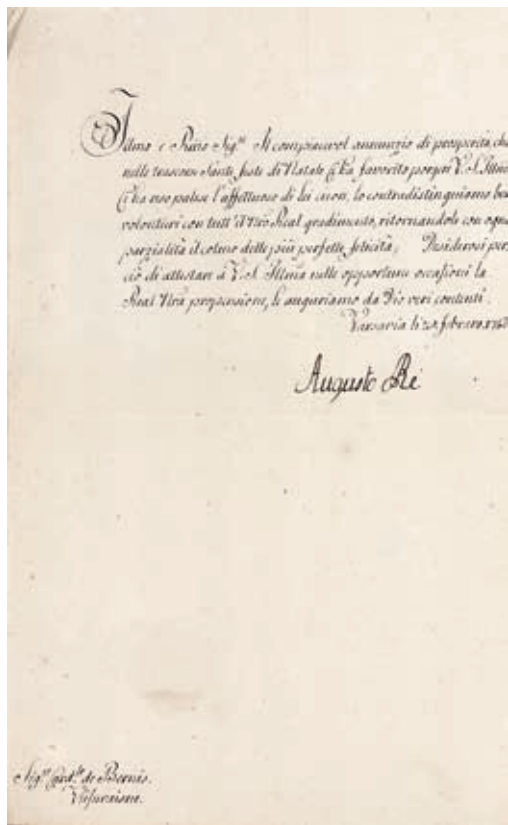 Illmo e Rmo Sig.re Il compiacevol annunzio di prosperità, che
nelle trascorse Sante feste di Natale Ci ha favorito porger V. S. Illma
Ci ha reso palese l'affettuoso di lei cuor, lo contradistinguiamo ben
volontieri con tutt' il Nro Real gradimento, ritornandole con ogni
parzialità il colmo delle più perfette felicità; Desiderosi per
ciò di attestare à V. S. Illma nelle opportune occasioni la
Real Nra propensione, le auguriamo da Dio veri contenti.
Varsavia li febraro
Augusto Rè
Sig.re Card.le de Bernis.